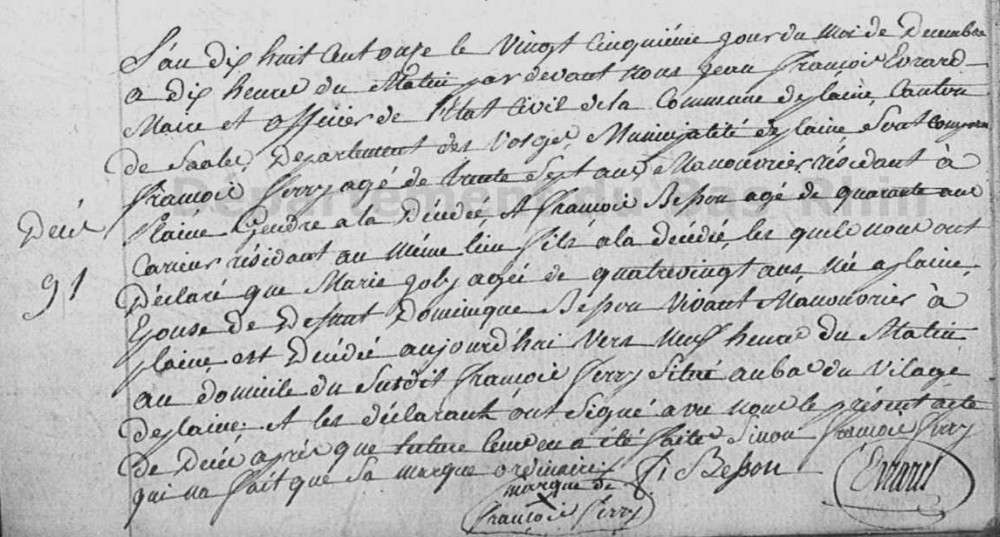 L'an dix huit cent onze le vingt cinquième jour du moi de Decembre
a dix heure du Matin par devant nous jean françois Evrard
Maire et officier de l'Etat Civil de la Commune de plaine, Canton
de Saales, Departement des Vosges, Municipalité de plaine Sont comparu
françois ferry agé de trente Sept ans Manouvrier, résidant à
Département du Bas-Rhin
Plaine Gendre a la Décédée, Et françois Besson agé de quarante ans
Décés
91
Carrier résidant au même lieu fils a la décédée, les quels nous ont
Déclaré que Marie joly agée de quatrevingt ans Née a plaine,
Epouse de Defunt Dominique Besson Vivant Manouvrier à
plaine, est Décédée aujourd'hui vers neuf heure du Matin
au domicile du Susdit françois ferry Situé au bas du Vilage
de plaine; Et les déclarants ont Signé avec nous le présent acte
de Décés, après que lecture leur en a été faite Sinon françois ferry
qui na fait que Sa marque ordinaire
f: Besson
Evrard
marque de
françois ferry